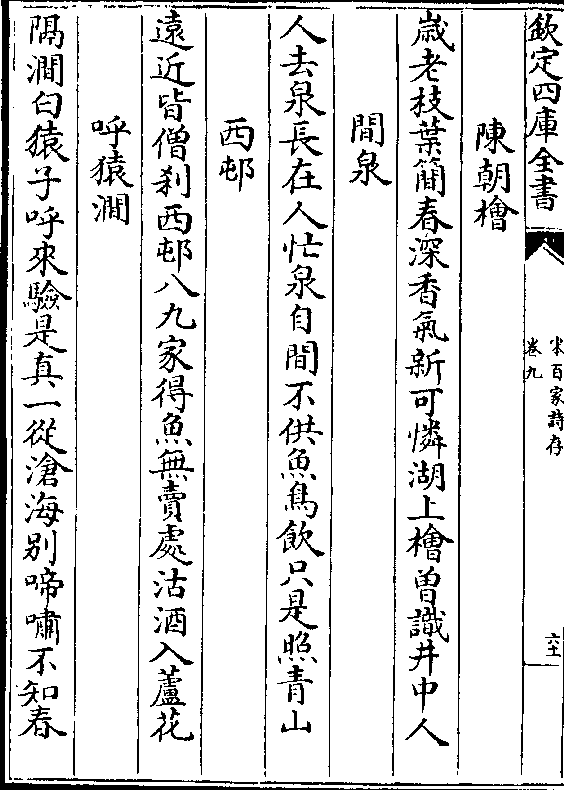 欽定四庫全書
宋百家詩存
卷九
六十
陳朝檜
歲老枝葉簡春深香氣新可憐湖上檜曽識井中人
閒泉
人去泉長在人忙泉自閒不供魚鳥飲只是照青山
西邨
遠近皆僧刹西邨八九家得魚無賣處沽酒入蘆花
呼猿澗
隔澗白猿子呼來驗是真一從滄海别啼嘯不知春